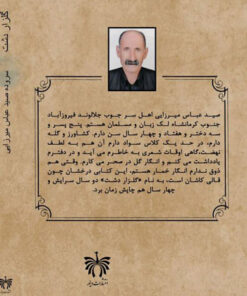 گلزار دشت
سروده صید عباس میرزایی
صید عباس میرزایی اهل سر جوب جلالوند فیروزآباد
جنوب کرمانشاه لک زبان و مسلمان هستم. پنج پسر و
سه دختر و هفتاد و چهار سال سن دارم. کشاورز و گله
دارم، در حد یک کلاس سواد دارم آن هم به لطف
نهضت،گاهی اوقات شعری به خاطرم می آید و در دفترم
یادداشت می کنم و انگار گل در صحر می کارم. وقتی هم
ذوق ندارم انگار خمار هستم. این کتابی درخشان چون
قالی کاشان است، به نام «گلزار دشت» دو سال سرایش و
چهار سال هم چاپش زمان برد.